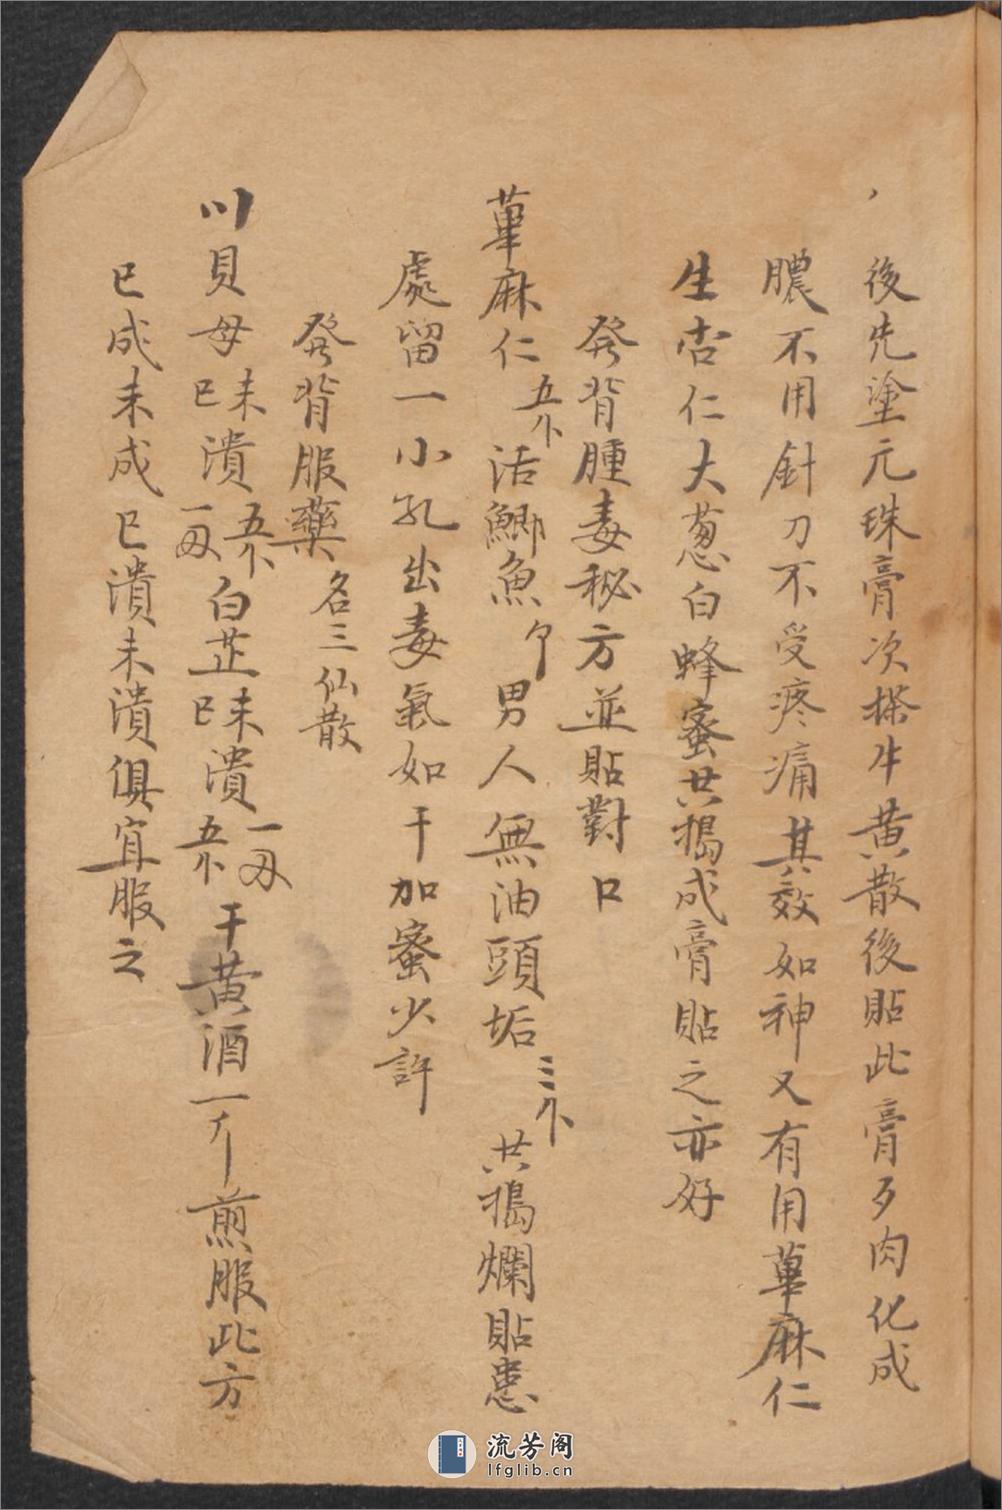 後先塗元珠膏次搽牛黄散後貼此膏歹肉化成
膿不用針刀不受疼痛其效如神又有用萆麻仁
生杏仁大葱白蜂蜜共搗成膏貼之亦好
發背腫毒秘方並貼對口
萆麻仁五个活鯽魚个男人無油頭垢三个共搗爛貼患
處留一小孔出毒氣如干加蜜少許
發背服藥名三仙散
川貝母未潰五个已一両白芷未潰一両已五个干黄酒一斤煎服此方
已成未成已潰未潰俱宜服之
流芳阁
lfglib.cn